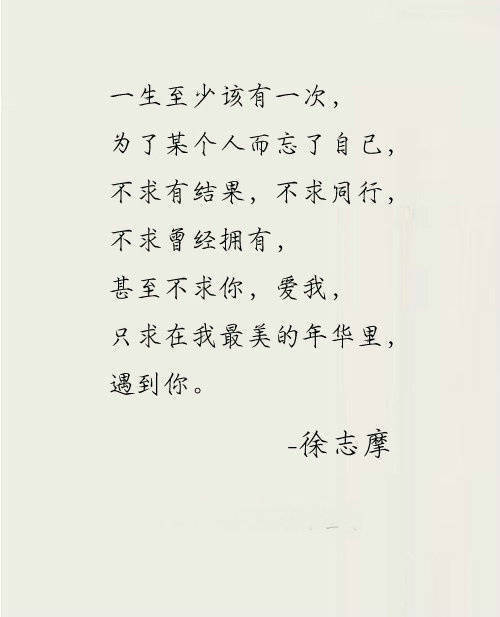 一生至少该有一次，
为了某个人而忘了自己，
不求有结果，不求同行，
不求曾经拥有，
甚至不求你，爱我，
只求在我最美的年华里，
遇到你。
-徐志摩